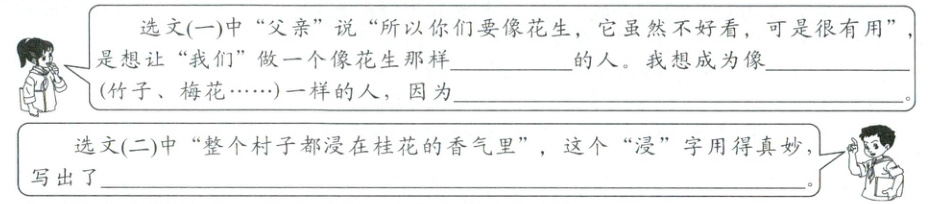 选文(一)中“父亲”说“所以你们要像花生，它虽然不好看，可是很有用”，
是想让“我们”做一个像花生那样__________的人。我想成为像____________
(竹子、梅花……)一样的人，因为______________________________________。
选文(二)中“整个村子都浸在桂花的香气里”，这个“浸”字用得真妙，
写出了____________________________________________________________。